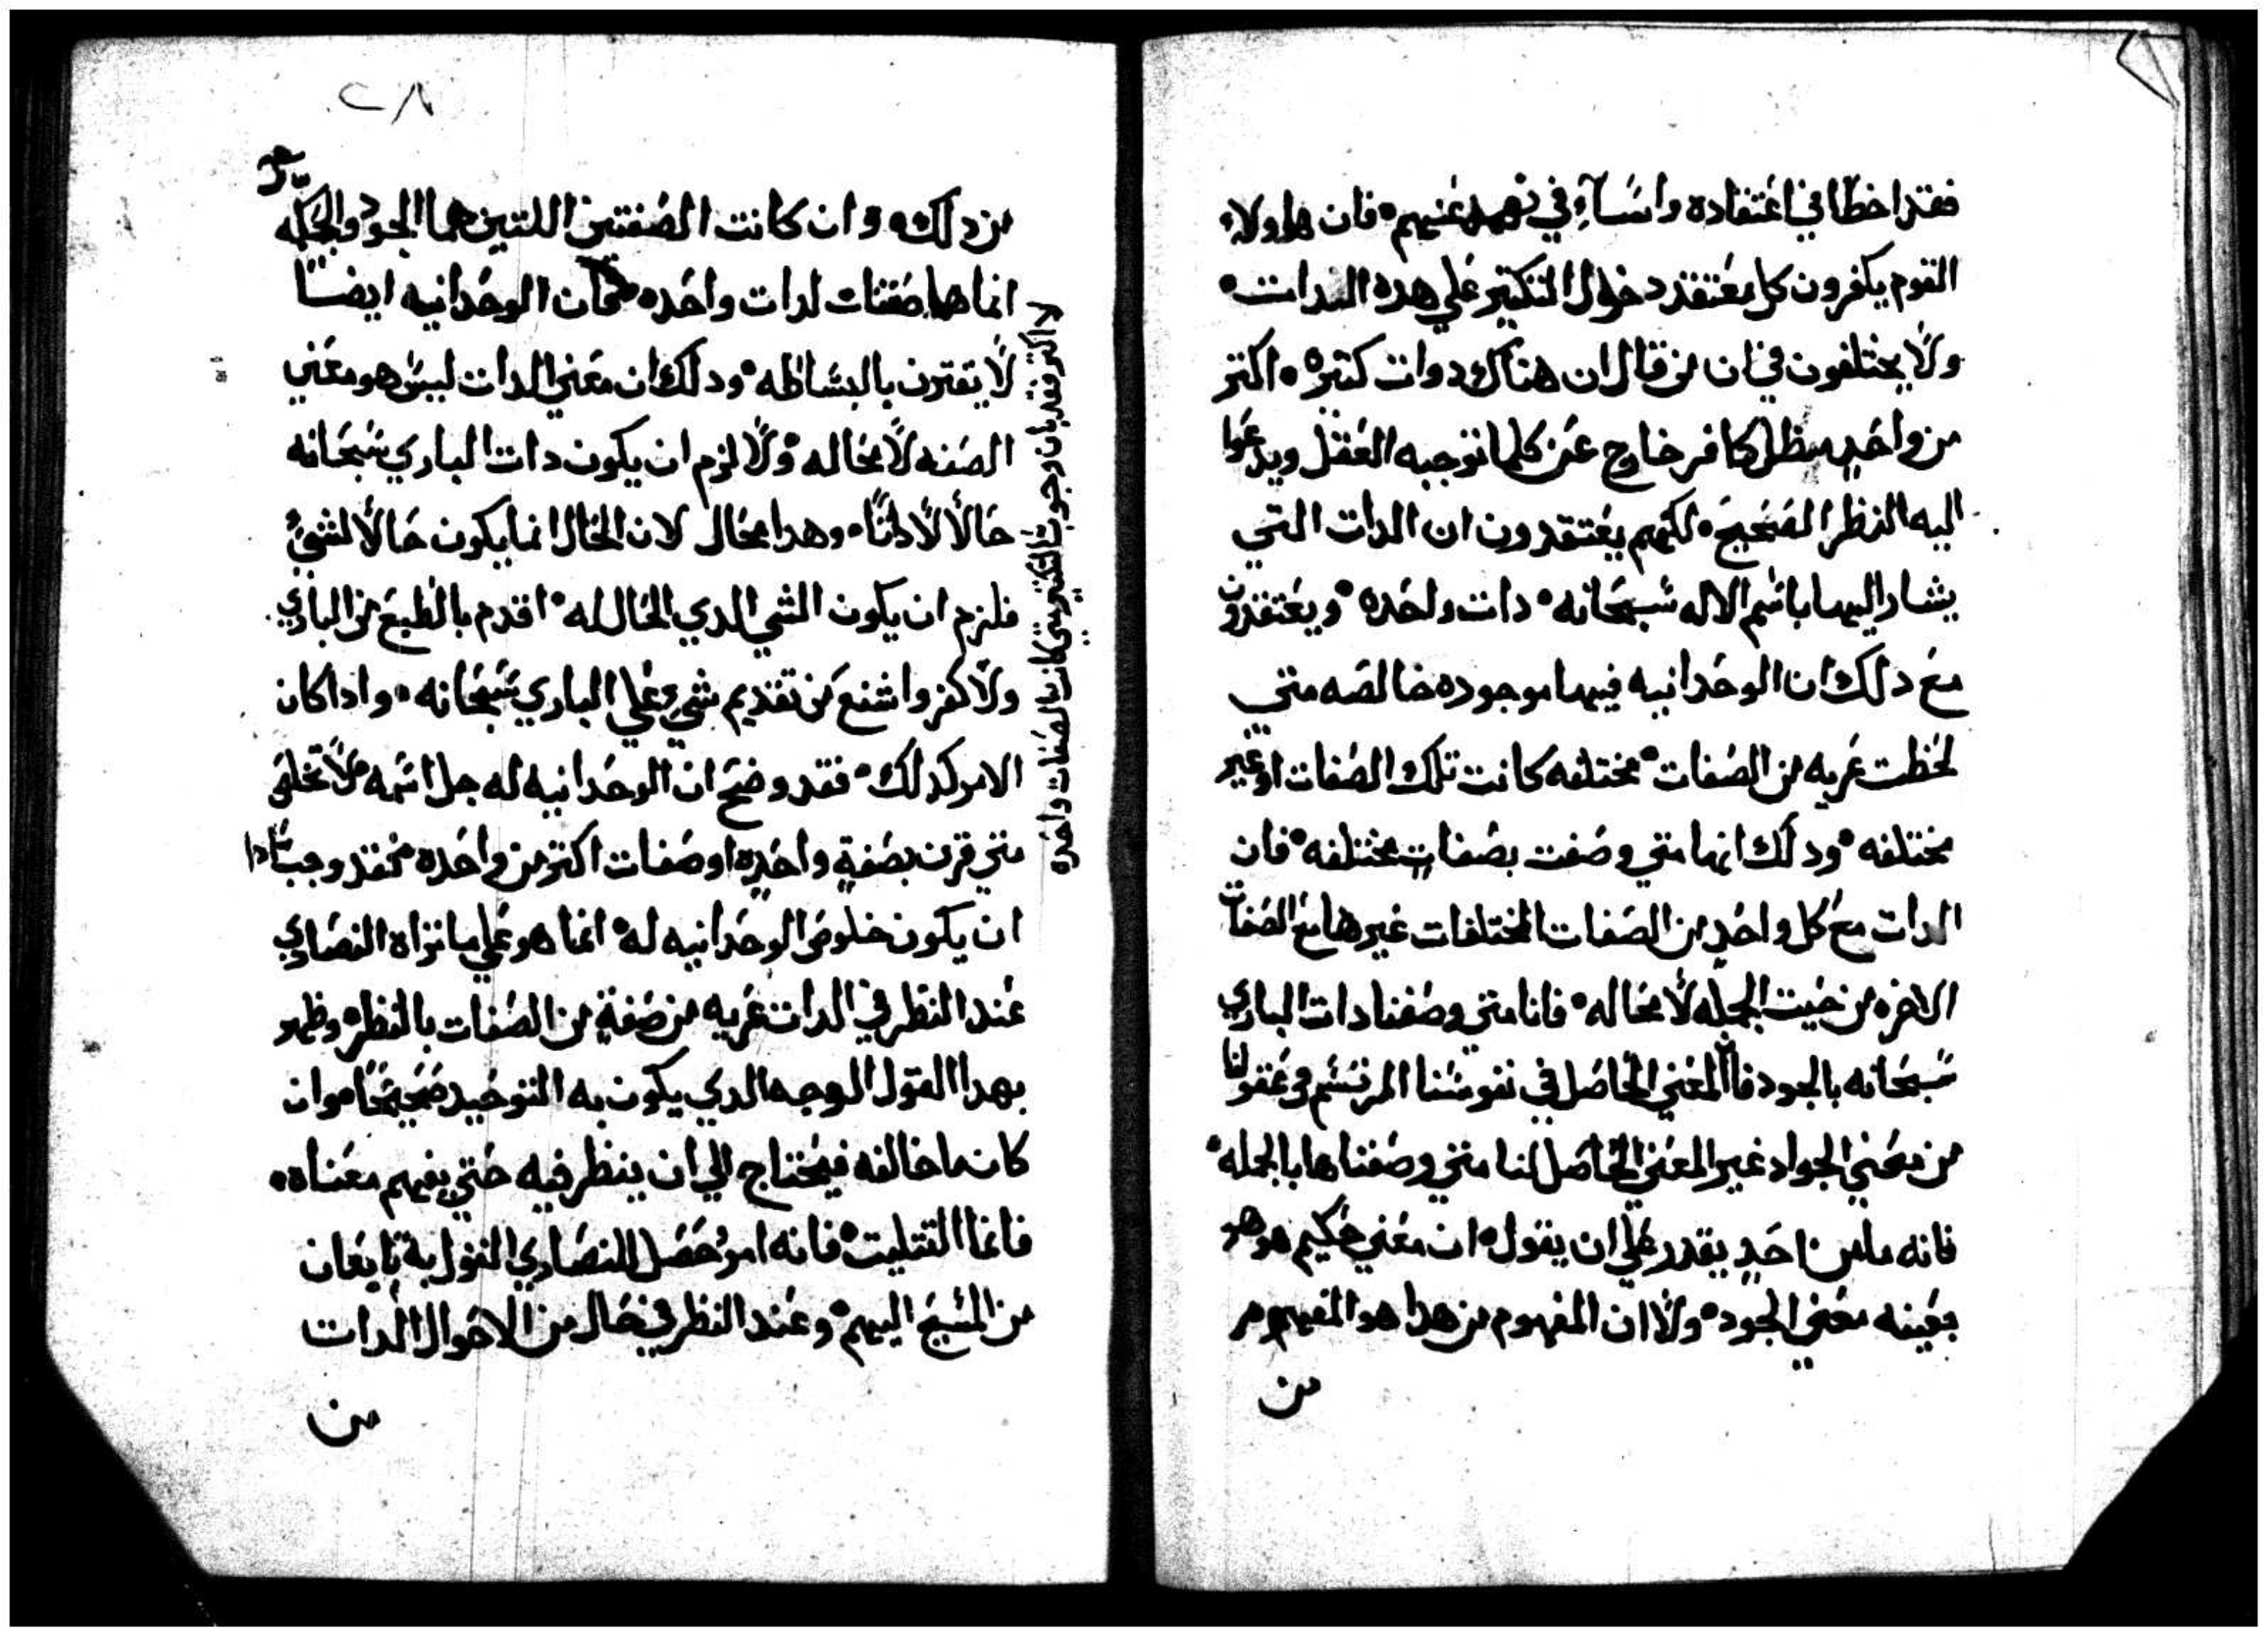 فقد اخطا في اعتقاده واساء في فهمه عنهم فان هاولاء
القوم يكفرون كل معتقد دخول التكتير علي هده الدات
ولا يختلفون في ان من قال ان هناك دوات كتيره اكتر
من واحد كافر خارج عن كلما توجبه العقل ويدعوا
اليه النظر الصحيح لكنهم يعتقدون ان الدات التي
يشار اليها باسم الاله سبحانه دات واحده ويعتقدون
مع دلك ان الوحدانيه فيها موجوده خالصه متي
لحظت عريه من الصفات مختلفه كانت تلك الصفات او غير
مختلفه ودلك انها متي وصفت بصفات مختلفه فان
الدات مع كل واحد من الصفات المختلفات غيرها مع الصفات
الاخره من حيت الجمله لا محاله فانا متي وصفنا دات الباري
سبحانه بالجود فان المعني الحاصل في نفوسنا المرتسم في عقولنا
من معني الجواد غير المعني الحاصل لنا متي وصفناها بالحكمه
فانه ما من احد يقدر علي ان يقول ان معني حكيم هو هو
بعينه معني الجود ولا ان المفهوم من هدا هو المفهوم
من
٢٨
من دلك وان كانت الصفتين اللتين هما الجود والحكمه
انما هما صفتان لدات واحده فان الوحدانيه ايضا
لا يقترن بالبساطه ودلك ان معني الدات ليس هو معني
الصفه لا محاله والا لزم ان يكون دات الباري سبحانه
حالا لا داتا وهدا محال لان الحال انما يكون حالا لشي
فلزم ان يكون الشي الدي الحال له اقدم بالطبع من الباري
ولا كفر واشنع من تقديم شي علي الباري سبحانه وادا كان
الامر كدلك فقد وضح ان الوحدانيه له جل اسمه لا تخلص
متي قرن بصفة واحدة او صفات اكتر من واحده فقد وجب ادا
ان يكون خلوص الوحدانيه له انما هو علي ما نراه النصاري
عند النظر في الدات عريه من صفة من الصفات بالنظر وظهر
بهدا القول الوجه الدي يكون به التوحيد صحيحا وان
كان ما خالفه فيحتاج الي ان ينظر فيه حتي يفهم معناه
فاما التتليت فانه امر حصل للنصاري القول به
من المسيح اليهم وعند النظر في حال من الاحوال الدات
من
لا اكتر فقد بان وجوب التكتير متي كان الصفات واحده